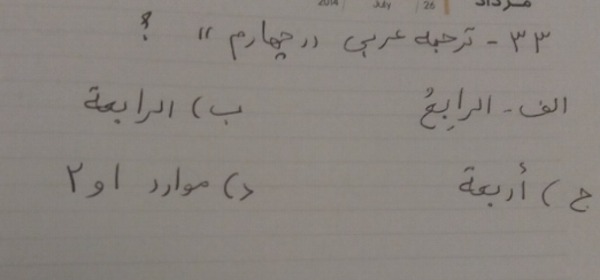 2014 July 26 مرداد
۳۳ - ترجمه عربی ,, چهارم ,, ؟
الف - الرابِعُ ب) الرابعة
ج) أربعة د) موارد ۱ و ۲